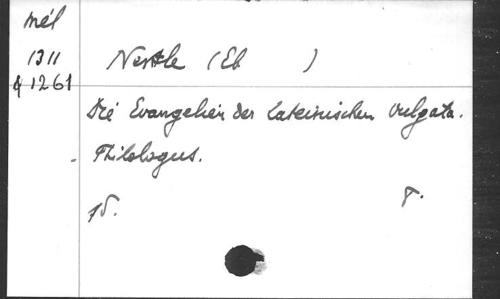 Mél
1311
& 1261
Nestle (Eb )
Die Evangelien der lateinischen Vulgata.
Philologus.
15. 8.